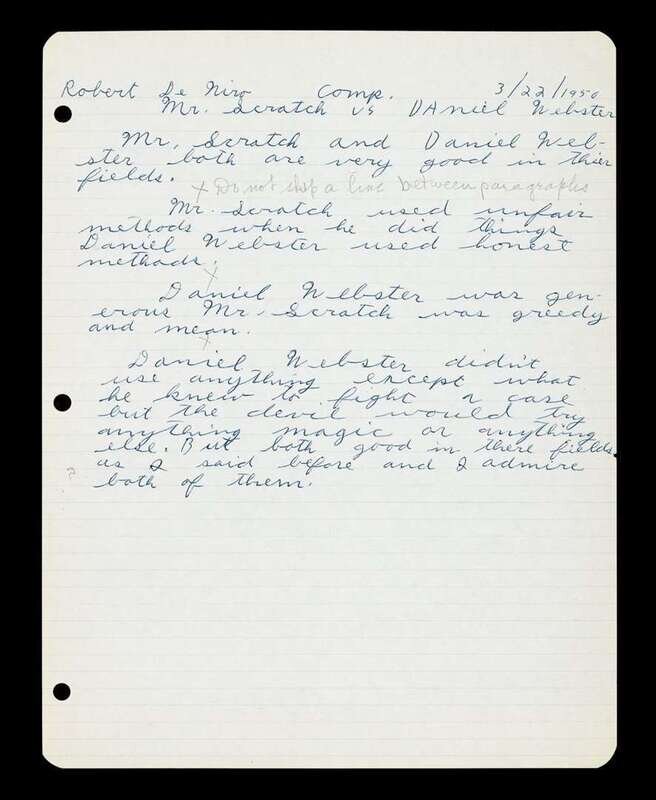 Robert De Niro Comp. 3/22/1956
Mr. Scratch vs DAniel Webster
Mr. Scratch and Daniel Web-
ster both are very good in thier
fields.
x Do not skip a line between paragraphs
Mr. Scratch used unfair
methods when he did things
Daniel Webster used honest
methods.
x
Daniel Webster was gen-
erous Mr. Scratch was greedy
and mean.
x
Daniel Webster didn't
use anything except what
he knew to fight a case
but the devil would try
anything magic or anything
else. But both good in there fields
as I said before and I admire
? both of them.